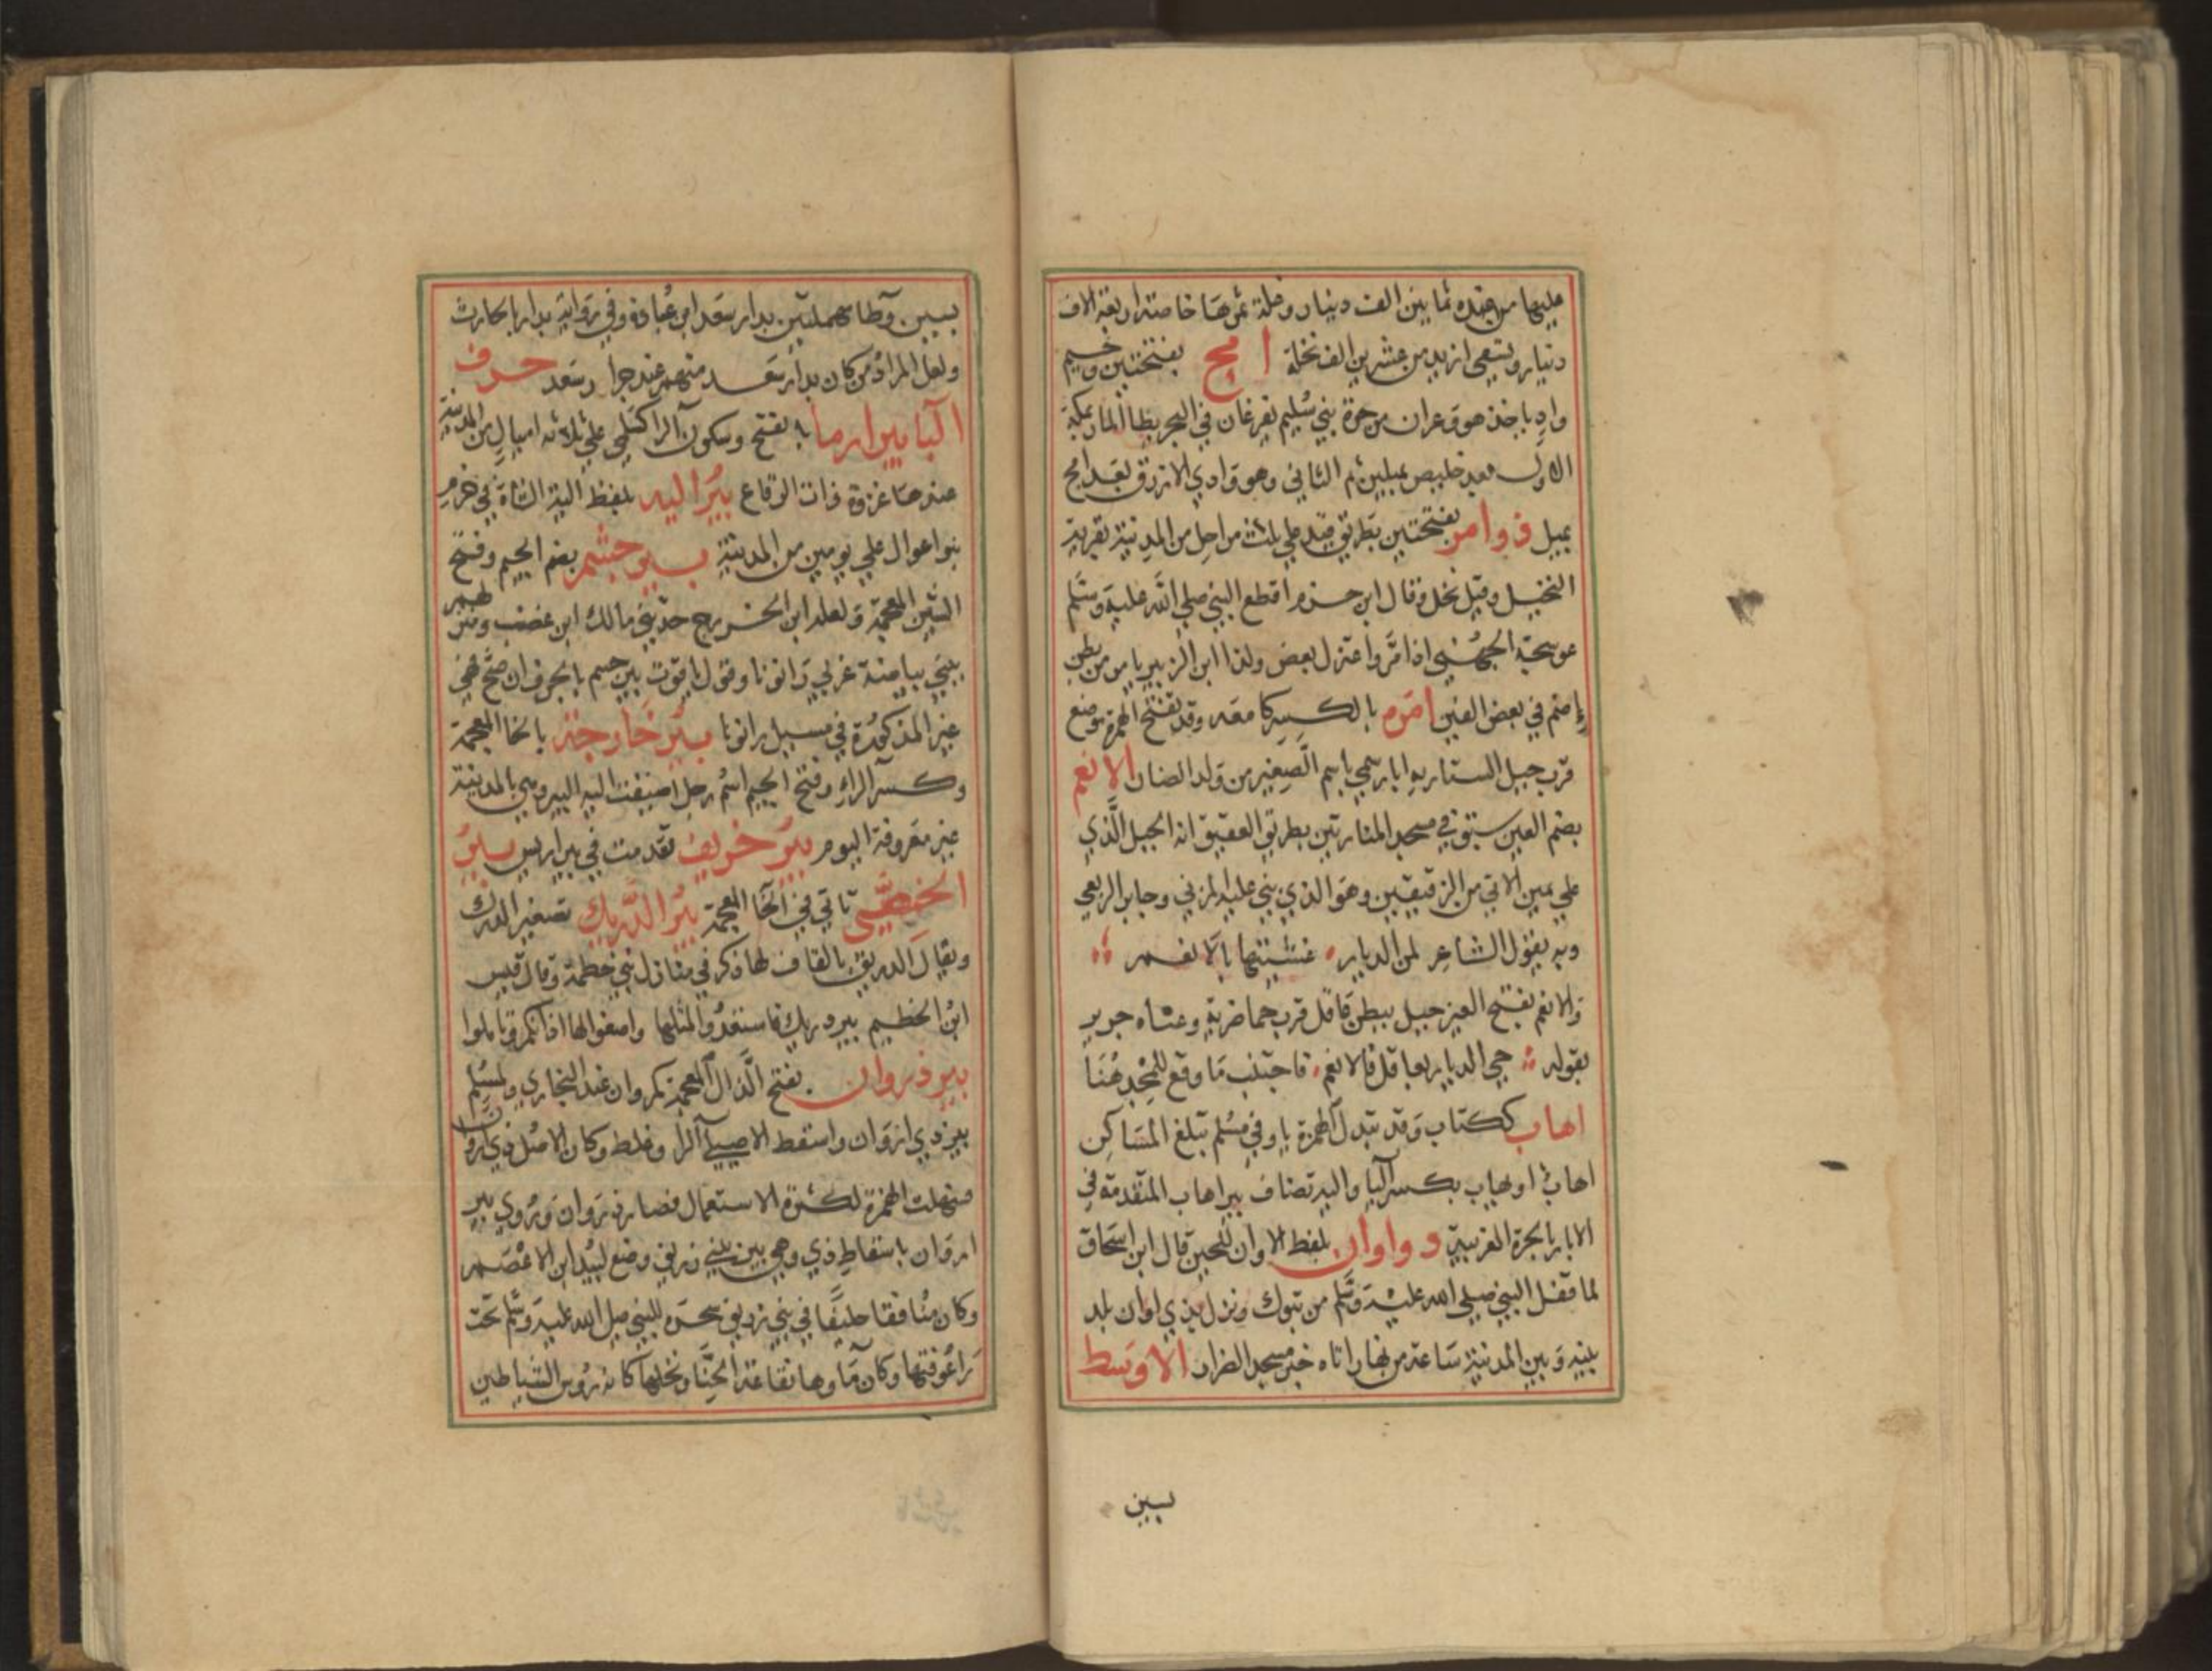 عليها من عنده ثمانين الف دينار وغلة ثمرها خاصة اربعة الاف
دينار ويسقي ازيد من عشرين الف نخلة امج بفتحتين وجيم
واد ياخذ هو وغران من حرة بني سليم تفرغان في البحر
الاول بعد خليص بميلين ثم الثاني وهو وادي الازرق بعد امج
بميل ذوامر بفتحتين بطريق فيد على ثلث مراحل من المدينة بقرية
النخيل وقيل نخل وقال ابن حزم اقطع النبي صلي الله عليه وسلم
عوسجة الجهني اذا مر واعتزل بعض ولذا ابن الزبير يامر من بطن
اضم في بعض الفتن امرة بالكسر كامعه وقد تفتح الهمزة موضع
قرب جبل الستار به ابار سمي باسم الصغير من ولد الضان الانعم
بضم العين سبق في مسجد المنارتين بطريق العقيق انه الجبل الذي
علي يمين الاتي من الرقيقين وهو الذي بني عليه المزني وجابر الربعي
وبه يقول الشاعر لمن الديار غشيتها بالانعم
والانعم بفتح العين جبل ببطن عاقل قرب حما ضرية وعناه جرير
بقوله حي الديار بعاقل فالانعم فاجتنب ما وقع للمجد هنا
اهاب ككتاب وقد تبدل الهمزة يا وفي مسلم تبلغ المساكن
اهاب او يهاب بكسر اليا واليه تضاف بير اهاب المتقدمة في
الابار بالحرة الغربية ذو اوان بلفظ الاوان للحين قال ابن اسحاق
لما قفل النبي صلي الله عليه وسلم من تبوك ونزل بذي اوان بلد
بينه وبين المدينة ساعة من نهار اتاه خبر مسجد الضرار الاوسط
بسين
بسين وطا مهملتين بدار سعد ابن عبادة وفي رواية بدار بالحارث
ولعل المراد من كان بدار سعد منهم عند جرار سعد حرف
البا بير ارما بالفتح وسكون الرا كسلمي علي ثلاثة اميال من المدينة
عندها غزوة ذات الرقاع بير اليه بلفظ الية الشاة في حزم
بنو اعوال علي يومين من المدينة بير جشم بضم الجيم وفتح
الشين المعجمة ولعله ابن الخزرج حديثي مالك ابن غضب ومنزلهم
ببني بياضة غربي رانونا وقول ياقوت بير جسم بالجرف ان صح فهي
غير المذكورة في مسيل رانونا بير خارجة بالخا المعجمة
وكسر الراء وفتح الجيم اسم رجل اضيفت اليه البير وهي بالمدينة
غير معروفة اليوم بير خريف تقدمت في بير اريس بير
الخصي تاتي في الخا المعجمة بير الدريك تصغير الدرك
ويقال الدريق بالقاف لها ذكر في منازل بني خطمة وقال قيس
ابن الخطيم بير دريك فاستعدوا لمثلها واصغوا لها اذانكم وتاملوا
بير ذروان بفتح الذال المعجمة كمروان عند البخاري ولمسلم
بير ذي اروان واسقط الاصيلي الرا وغلط وكان الاصل ذي اروان
فسهلت الهمزة لكثرة الاستعمال فصار ذروان وروي بير
اروان باسقاط ذي وهي بير ببني زريق وضع لبيد ابن الاعصم
وكان منافقا حليفا في بني زريق سحره للنبي صلي الله عليه وسلم تحت
راعوفتها وكان ماوها نقاعة الحنا ونخلها كانه روس الشياطين